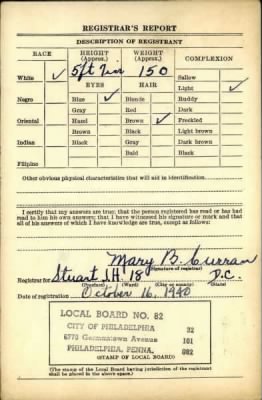 REGISTRAR'S REPORT
DESCRIPTION OF REGISTRANT
RACE HEIGHT (Approx.) WEIGHT (Approx.) COMPLEXION
5ft 150
White ✓ EYES HAIR Sallow
Light ✓
Negro Blue ✓ Blonde Ruddy
Gray Red Dark
Oriental Hazel Brown ✓ Freckled
Brown Black Light brown
Indian Black Gray Dark brown
Bald Black
Filipino
Other obvious physical characteristics that will aid in identification
I certify that my answers are true; that the person registered has read or has had
read to him his own answers; that I have witnessed his signature or mark and that
all of his answers of which I have knowledge are true, except as follows:
Mary B. Curran
(Signature of registrar)
Registrar for Stuart J.H. 18 D.C.
(Precinct) (Ward) (City or county) (State)
Date of registration October 16, 1940
LOCAL BOARD NO. 82
CITY OF PHILADELPHIA 32
6770 Germantown Avenue 101
PHILADELPHIA, PENNA. 082
(STAMP OF LOCAL BOARD)
(The stamp of the Local Board having jurisdiction of the registrant
shall be placed in the above space.)